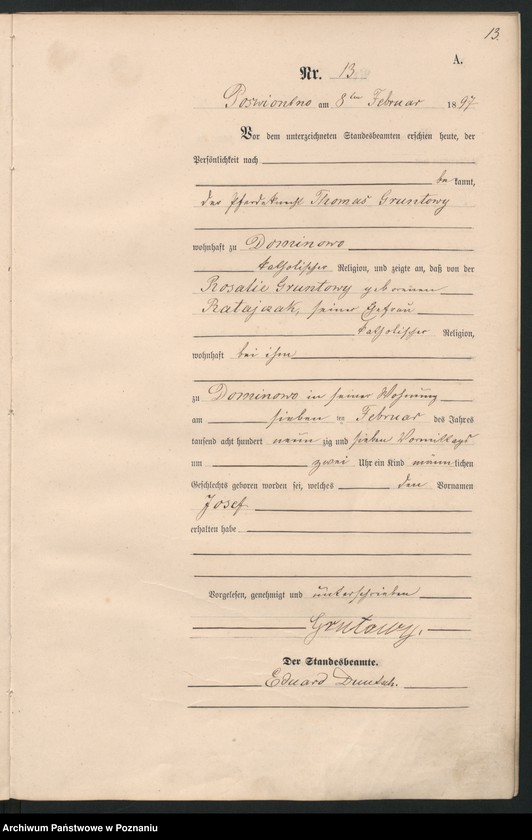 13.
A.
Nr. 13
Poswiontno am 8ten Februar 1897.
Vor dem unterzeichneten Standesbeamten erschien heute, der
Persönlichkeit nach
be kannt,
der Pferdeknecht Thomas Gruntowy
wohnhaft zu Dominowo
katholischer Religion, und zeigte an, daß von der
Rosalie Gruntowy geborenen
Ratajczak, seiner Ehefrau
katholischer Religion,
wohnhaft bei ihm
zu Dominowo in seiner Wohnung
am sieben ten Februar des Jahres
tausend acht hundert neun zig und sieben Vormittags
um zwei Uhr ein Kind männlichen
Geschlechts geboren worden sei, welches den Vornamen
Josef
erhalten habe
Vorgelesen, genehmigt und unterschrieben
Grutowy.
Der Standesbeamte.
Eduard
Archiwum Państwowe w Poznaniu